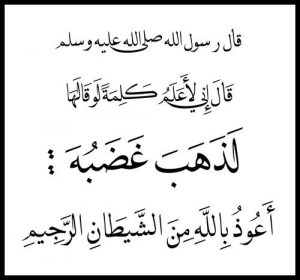 قال رسول الله صلى الله عليه وسلم
قَالَ إِنِّي لَأَعْلَمُ كَلِمَةً لَوْ قَالَهَا
لَذَهَبَ غَضَبُهَ :
أَعُوذُ بِاللَّهِ مِنَ الشَّيْطَانِ الرَّجِيمِ